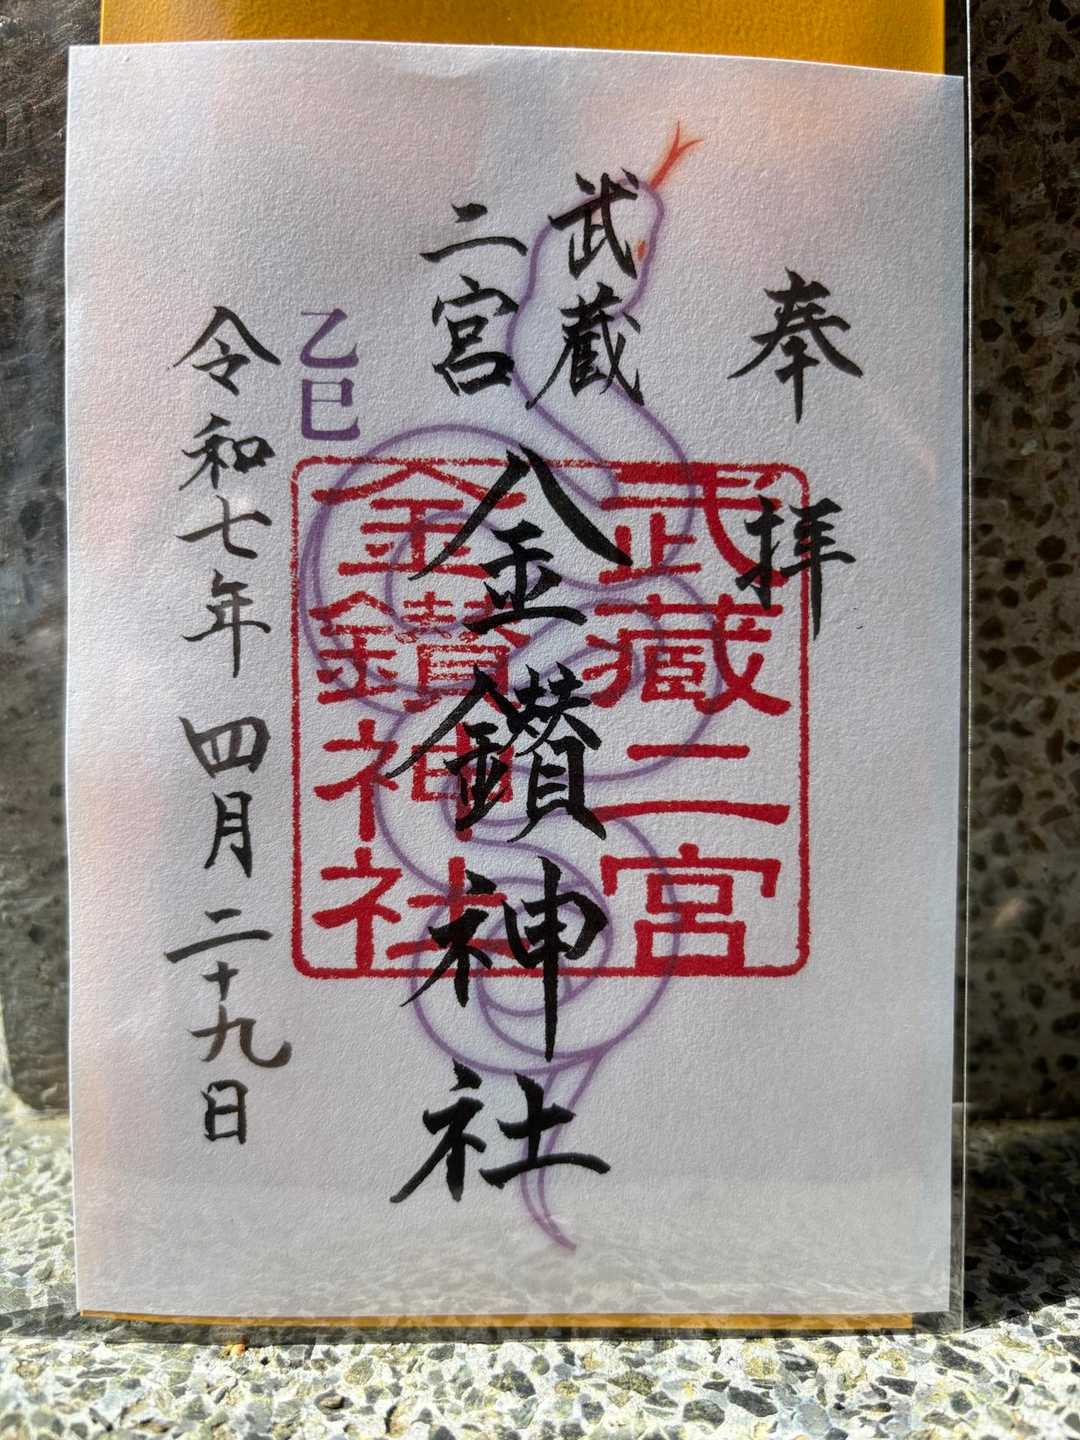 奉拝
武蔵
二宮
金鑚神社
武蔵二宮
金鑚神社
乙巳
令和七年 四月二十九日